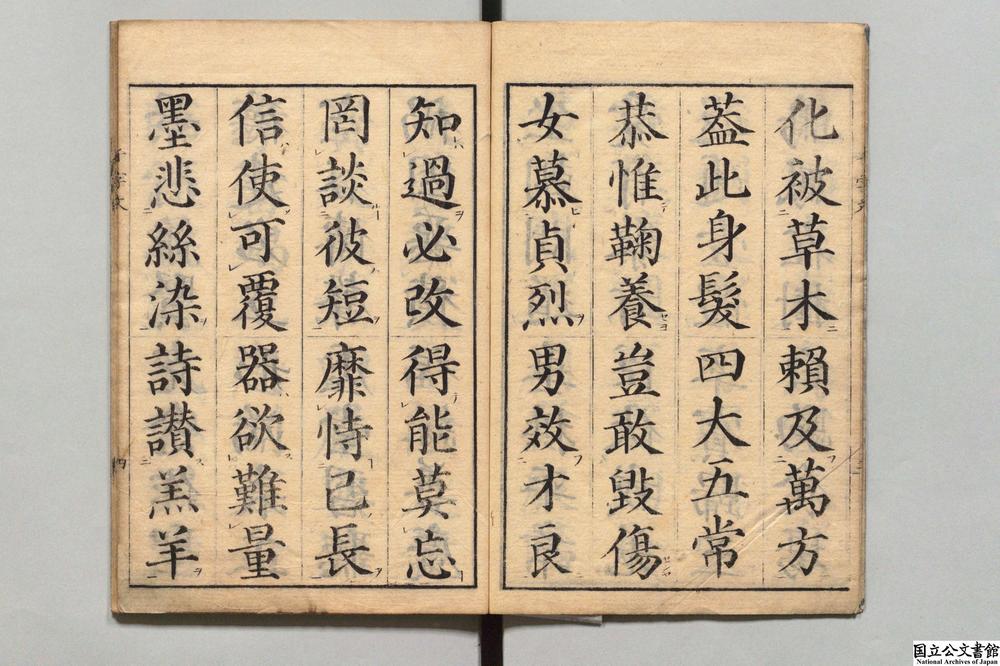 化被草木賴及萬方
蓋此身髮四大五常
恭惟鞠養豈敢毀傷
女慕貞烈男效才良
知過必改得能莫忘
罔談彼短靡恃己長
信使可覆器欲難量
墨悲絲染詩讃羔羊
四
国立公文書館
National Archives of Japan